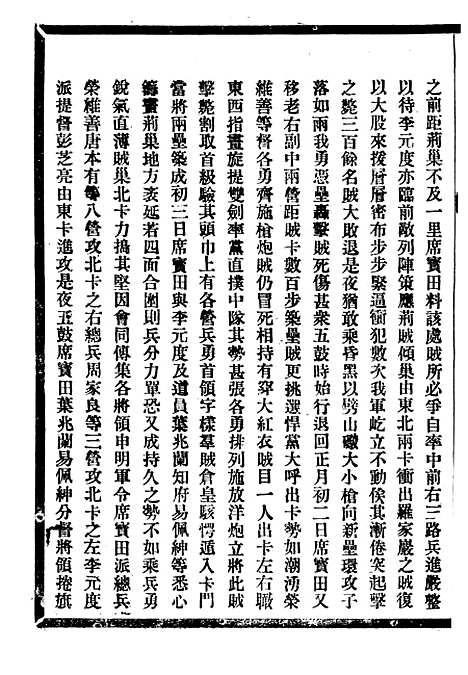 之前距荊巢不及一里席寶田料該處賊所必爭自率中前右三路兵進嚴整
以待李元度亦臨前敵列陣策應荊賊傾巢由東北兩卡衝出羅家嚴之賊復
以大股來援層層密布步步緊逼衝犯數次我軍屹立不動俟其漸倦突起擊
之斃三百餘名賊大敗退是夜猶敢乘昏黑以劈山礮大小槍向新壘環攻子
落如雨我勇憑壘轟擊賊死傷甚衆五鼓時始行退回正月初二日席寶田又
移老右副中兩營距賊卡數百步築壘賊更挑選悍黨大呼出卡勢如潮湧榮
維善等督各勇齊施槍炮賊仍冒死相持有穿大紅衣賊目一人出卡左右職
東西指畫旋提雙劍率黨直撲中隊其勢甚張各勇排列施放洋炮立將此賊
擊斃割取首級驗其頭巾上有各管兵勇首領字樣羣賊倉皇駭愕遁入卡門
當將兩壘築成初三日席寶田與李元度及道員葉兆蘭知府易佩紳等悉心
籌畫荊巢地方袤延若四面合圍則兵分力單恐又成持久之勢不如乘兵勇
銳氣直薄賊巢北卡力搗其堅因會同傅集各將領申明軍令席寶田派總兵
榮維善唐本有等八營攻北卡之右總兵周家良等三營攻北卡之左李元度
派提督彭芝亮由東卡進攻是夜五鼓席寶田葉兆蘭易佩紳分督將領捲旗